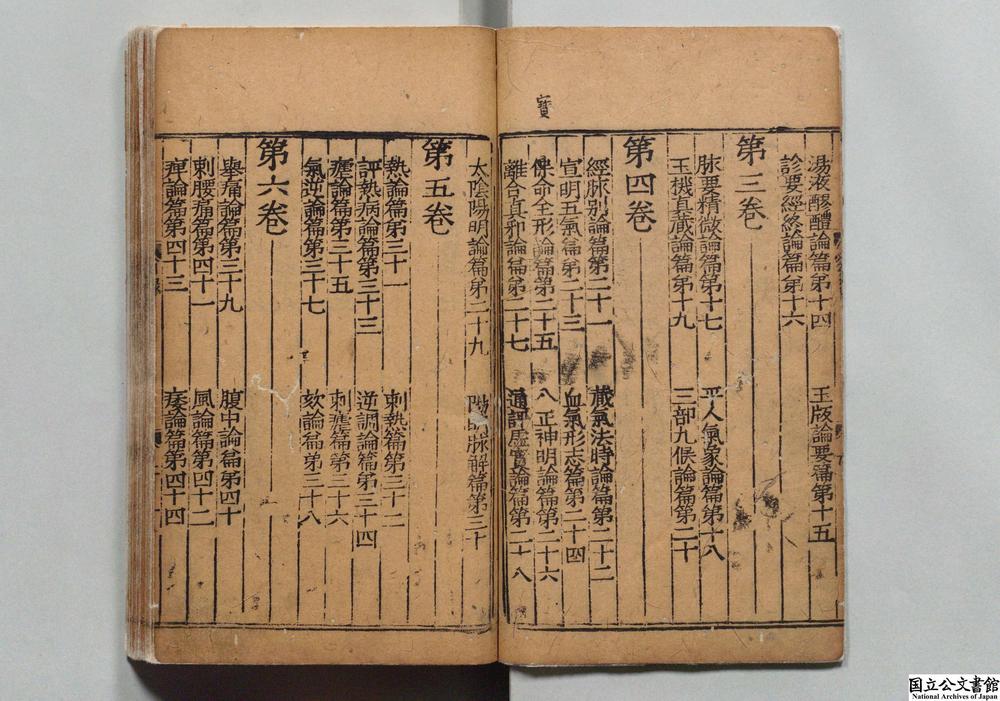 寶
湯液醪醴論篇第十四 玉版論要篇第十五
診要經終論篇第十六
第三卷
脉要精微論篇第十七 平人氣象論篇第十八
玉機眞藏論篇第十九 三部九候論篇第二十
第四卷
經脉別論篇第二十一 藏氣法時論篇第二十二
宣明五氣篇第二十三 血氣形志篇第二十四
保命全形論篇第二十五 八正神明論篇第二十六
離合眞邪論篇第二十七 通評虛實論篇第二十八
太陰陽明論篇第二十九 陽明脉解篇第三十
第五卷
熱論篇第三十一 刺熱篇第三十二
評熱病論篇第三十三 逆調論篇第三十四
瘧論篇第三十五 刺瘧篇第三十六
氣逆論篇第三十七 欬論篇第三十八
第六卷
舉痛論篇第三十九 腹中論篇第四十
刺腰痛篇第四十一 風論篇第四十二
痺論篇第四十三 痿論篇第四十四
国立公文書館
National Archives of Japan